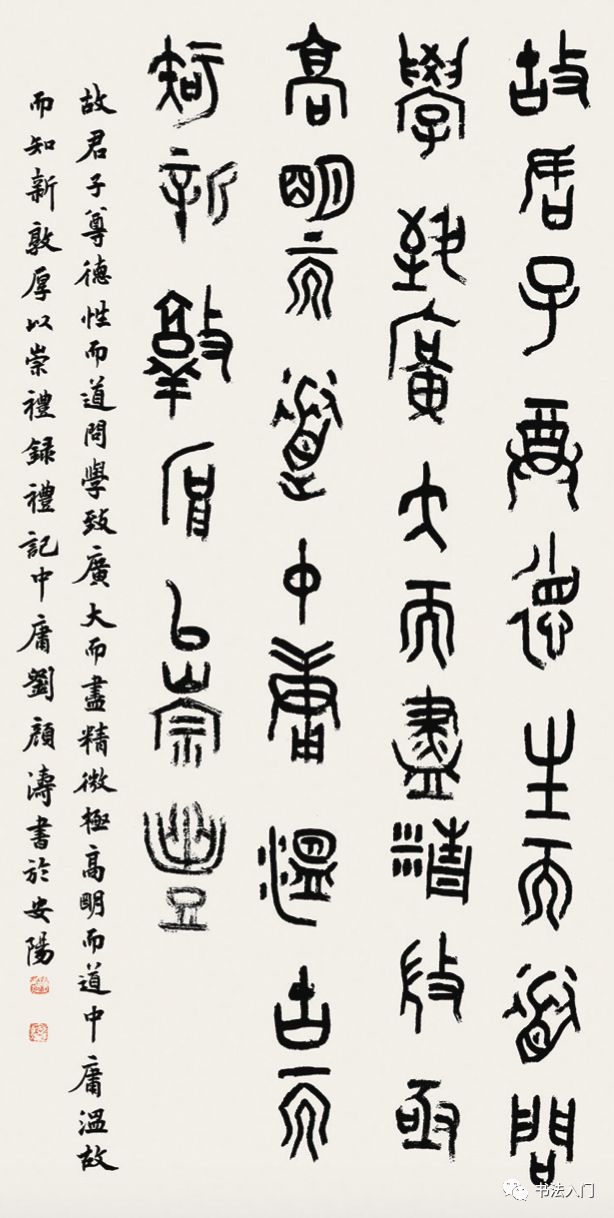 故君子尊德生而道問
學致廣大而盡精微亟
高明而道中庸溫古而
知新敦厚以崇豊
故君子尊德性而道問學致廣大而盡精微極高明而道中庸溫故
而知新敦厚以崇禮録禮記中庸劉顏濤書於安陽
书法入门